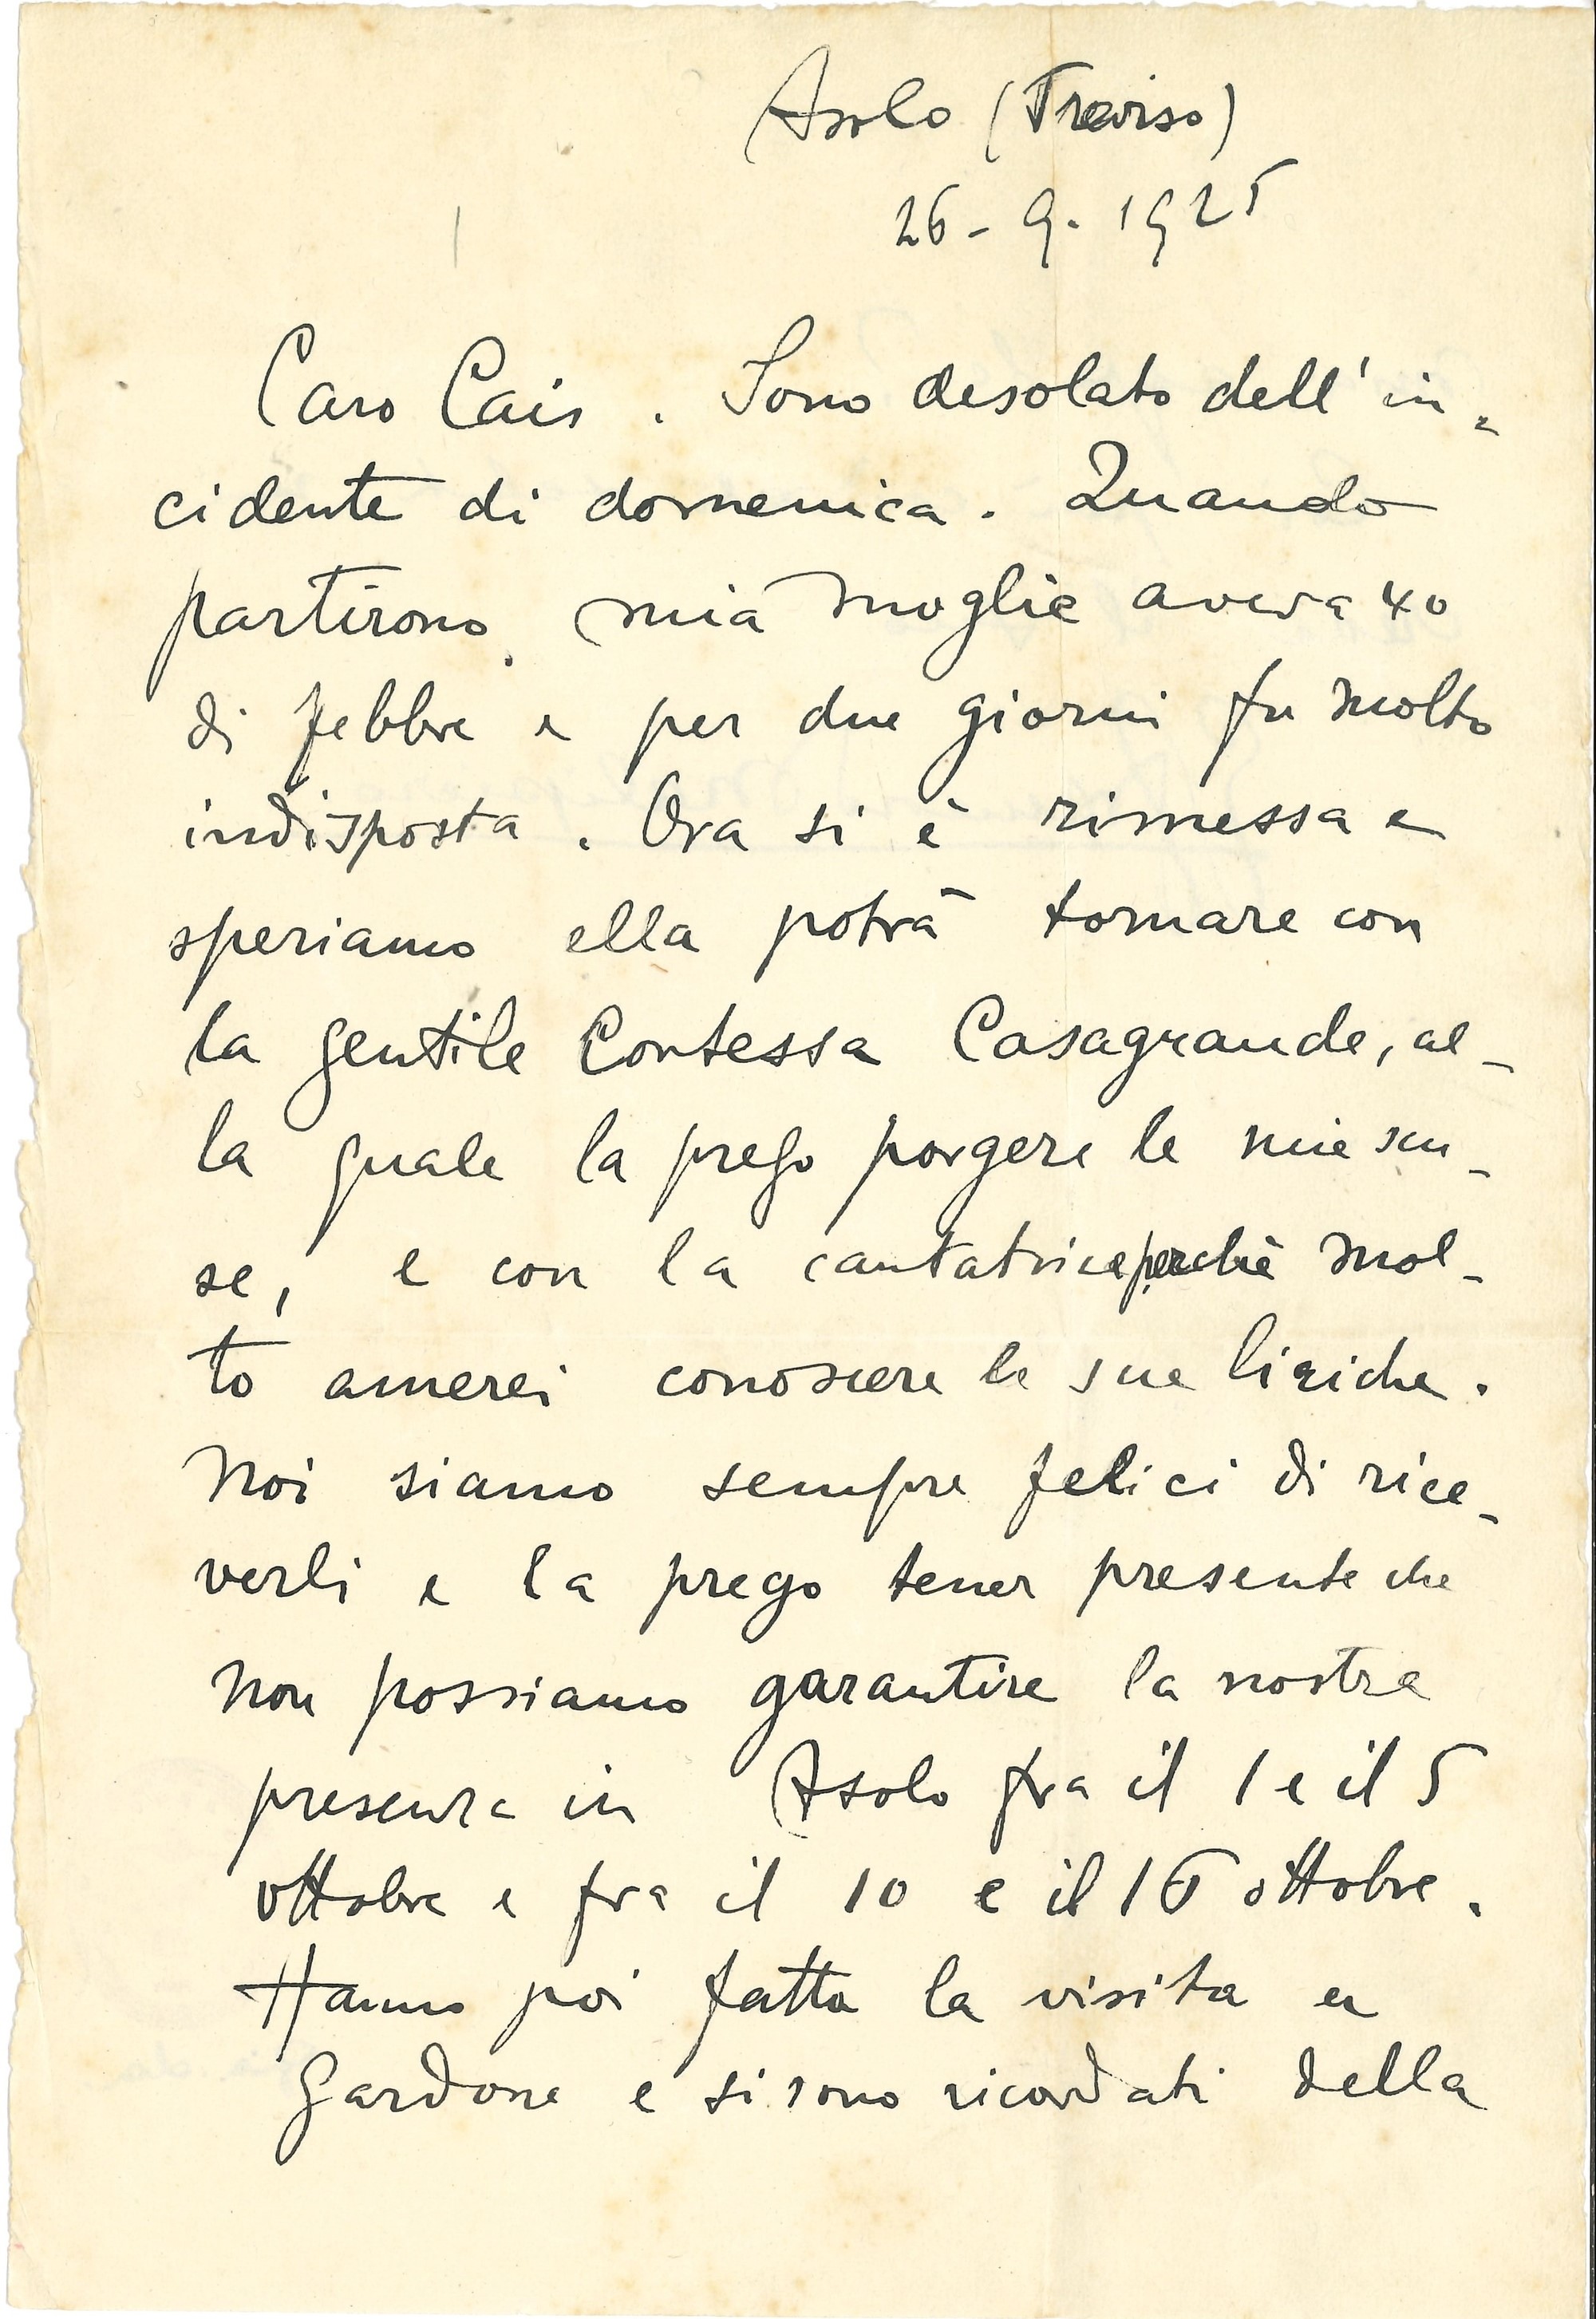 Asolo (Treviso)
26 - 9. 1925
Caro Cais. Sono desolato dell'in=
cidente di domenica. Quando
partirono, mia moglie aveva 40
di febbre e per due giorni fu molto
indisposta. Ora si è rimessa e
speriamo ella potrà tornare con
la gentile Contessa Casagrande, al-
la quale la prego porgere le mie scu-
se, e con la cantatrice perchè mol-
to amerei conoscere le sue liriche.
Noi siamo sempre felici di rice-
verli e la prego tener presente che
non possiamo garantire la nostra
presenza in Asolo fra il 1 e il 5
ottobre e fra il 10 e il 16 ottobre.
Hanno poi fatta la visita a
Gardone e si sono ricordati della